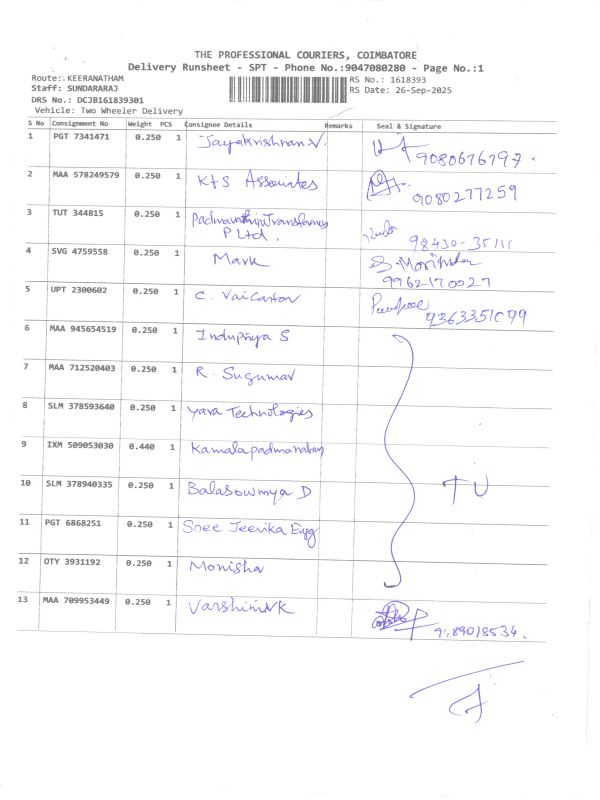 THE PROFESSIONAL COURIERS, COIMBATORE
Delivery Runsheet - SPT - Phone No.:9047080280 - Page No.:1
Route: KEERANATHAM RS No.: 1618393
Staff: SUNDARARAJ RS Date: 26-Sep-2025
DRS No.: DCJB161839301
Vehicle: Two Wheeler Delivery
S No Consignment No Weight PCS Consignee Details Remarks Seal & Signature
1 PGT 7341471 0.250 1 Jayakrishnan.V 9080676797.
2 MAA 578249579 0.250 1 K&S Associates 9080277259
3 TUT 344815 0.250 1 Padmavathiji Transformers
P Ltd. 98430-35111
4 SVG 4759558 0.250 1 Mark
9962170027
5 UPT 2300602 0.250 1 C. 9363351099
6 MAA 945654519 0.250 1 Indupriya S
7 MAA 712520403 0.250 1 R. Sugumar
8 SLM 378593640 0.250 1 yara Technologies
9 IXM 509053030 0.440 1 Kamalapadmanatan
10 SLM 378940335 0.250 1 Balasowmya D TU
11 PGT 6868251 0.250 1 Sree Jeevika Engg
12 OTY 3931192 0.250 1 Monisha
13 MAA 709953449 0.250 1 Varshini VK